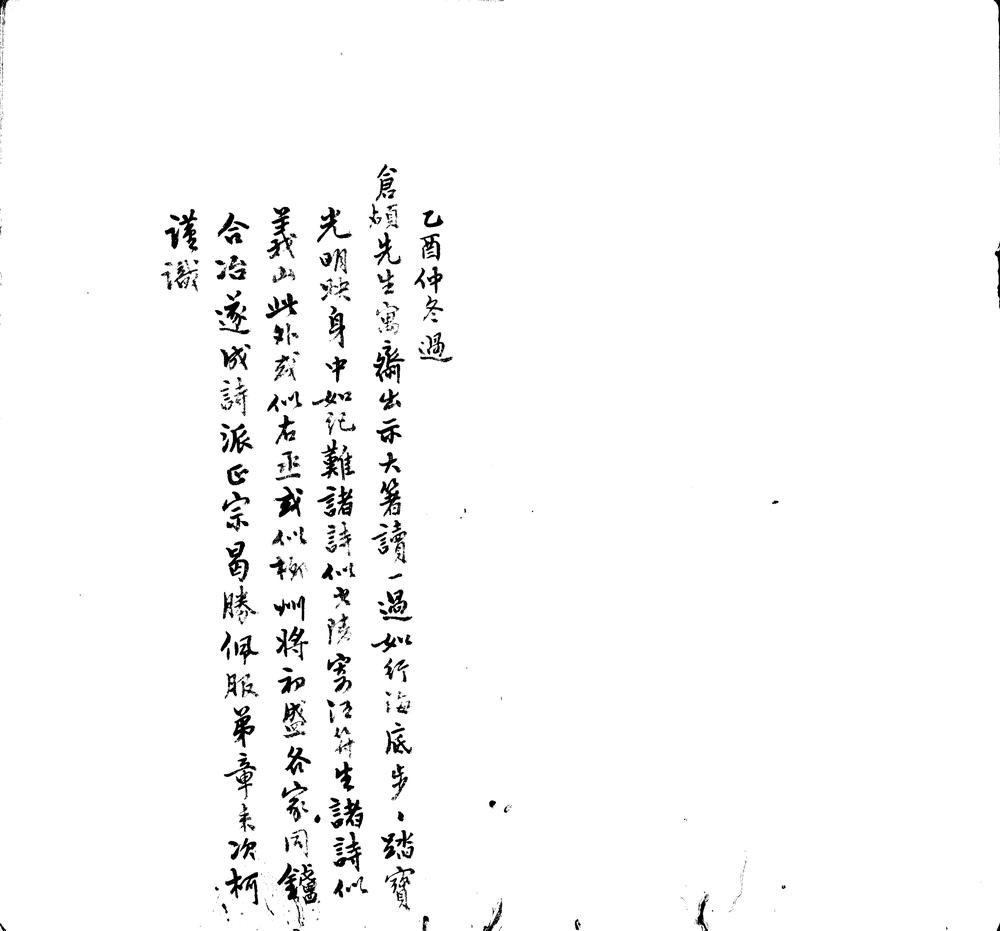 乙酉仲冬過
倉頡先生寓齋出示大著讀一過如行海底步、踏寶
光明映身中如記難諸詩似少陵寄江符生諸詩似
義山此外或似右丞或似柳州將初盛各家同鑪
合冶遂成詩派正宗曷勝佩服弟章耒次柯
謹識